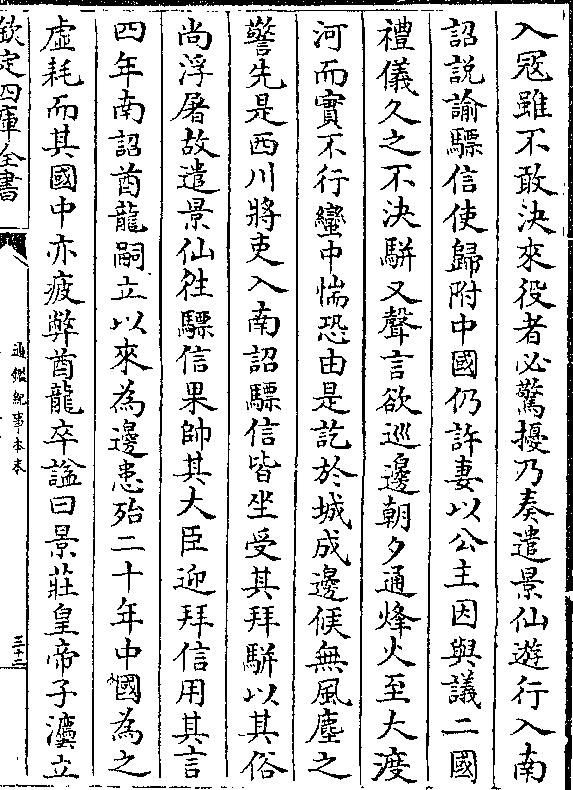 入冦雖不敢決來役者必驚擾乃奏遣景仙遊行入南
詔說諭驃信使歸附中國仍許妻以公主因與議二國
禮儀久之不決駢又聲言欲巡邊朝夕通烽火至大渡
河而實不行蠻中惴恐由是訖於城成邊候無風塵之
警先是西川將吏入南詔驃信皆坐受其拜駢以其俗
尚浮屠故遣景仙徃驃信果帥其大臣迎拜信用其言
四年南詔酋龍嗣立以來為邊患殆二十年中國為之
虛耗而其國中亦疲弊酋龍卒諡曰景莊皇帝子灋立
欽定四庫全書
通鑑紀事本末
三十三